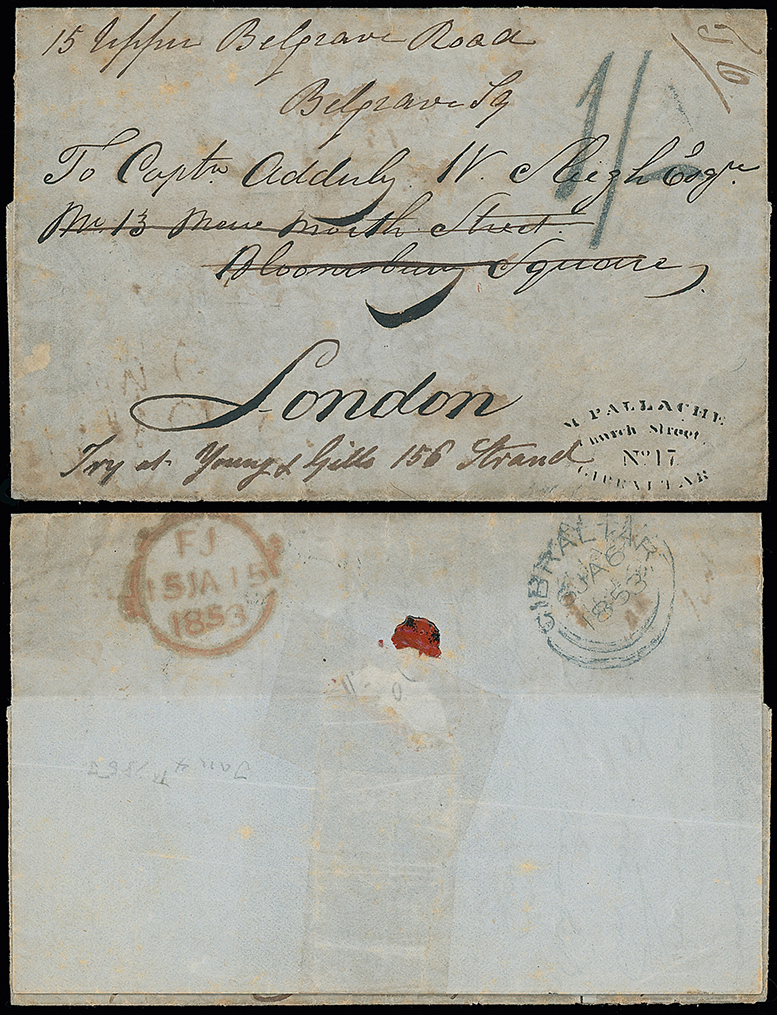 15 Upper Belgrave Road
Belgrave Sq
1/-
To Captn. Adderly W. Sleigh Esqre.
No 13 New North Street
Bloomsbury Square
London
Try at Young & Gills 156 Strand
M PALLACHE
Church Street
No. 17
GIBRALTAR
FJ
15 JA 15
1853
GIBRALTAR
JA 6
1853
Jan 4th 1853